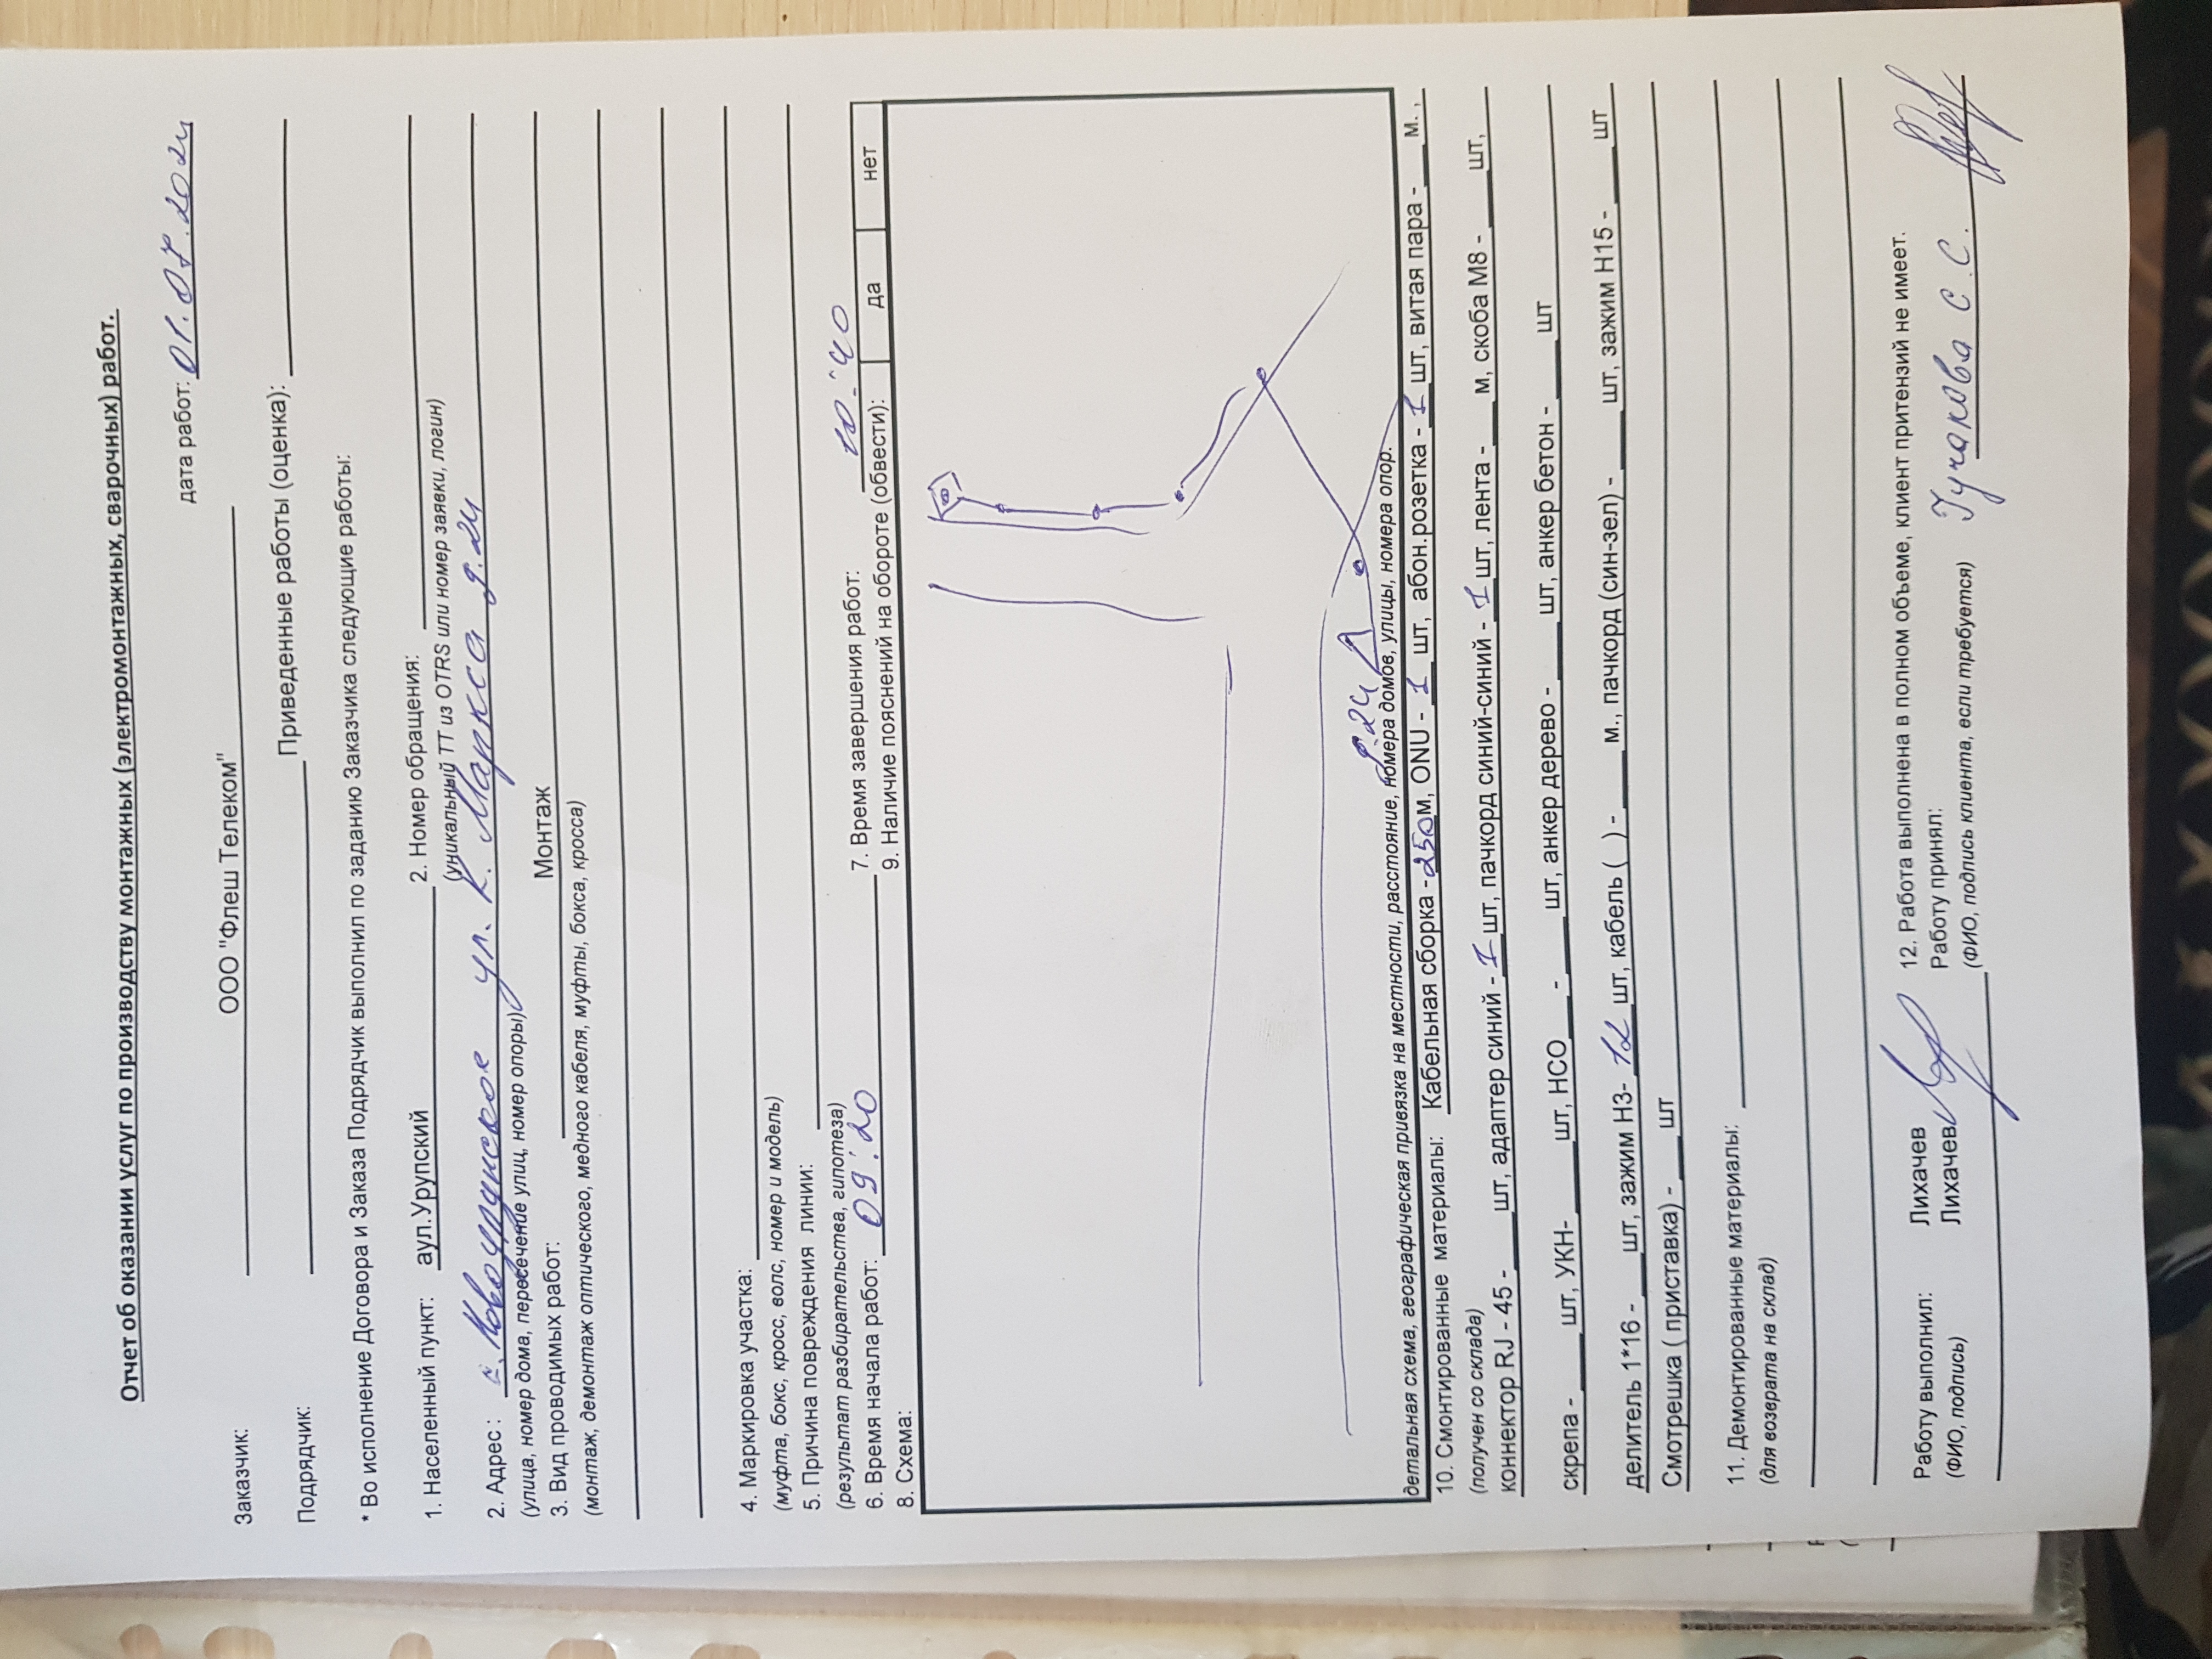 Отчет об оказании услуг по производству монтажных (электромонтажных, сварочных) работ.
дата работ: 01.07.2024
Заказчик: ООО "Флеш Телеком"
Подрядчик: Приведенные работы (оценка):
* Во исполнение Договора и Заказа Подрядчик выполнил по заданию Заказчика следующие работы:
1. Населенный пункт: аул.Урупский 2. Номер обращения:
(уникальный ТТ из OTRS или номер заявки, логин)
2. Адрес : с. Новоурупское ул. К. Маркса д.24
(улица, номер дома, пересечение улиц, номер опоры)
3. Вид проводимых работ: Монтаж
(монтаж, демонтаж оптического, медного кабеля, муфты, бокса, кросса)
4. Маркировка участка:
(муфта, бокс, кросс, волс, номер и модель)
5. Причина повреждения линии:
(результат разбирательства, гипотеза)
6. Время начала работ: 09:20 7. Время завершения работ: 10:40
8. Схема: 9. Наличие пояснений на обороте (обвести): да нет
д.24
детальная схема, географическая привязка на местности, расстояние, номера домов, улицы, номера опор.
10. Смонтированные материалы: Кабельная сборка - 250 м, ONU - 1 шт, абон.розетка - 1 шт, витая пара - ___ м. ,
(получен со склада)
коннектор RJ - 45 - ___ шт, адаптер синий - 1 шт, пачкорд синий-синий - 1 шт, лента - ___ м, скоба М8 - ___ шт,
скрепа - ___ шт, УКН- ___ шт, НСО___ - ___ шт, анкер дерево - ___ шт, анкер бетон - ___ шт
делитель 1*16 - ___ шт, зажим Н3- 12 шт, кабель ( ) - ___ м., пачкорд (син-зел) - ___ шт, зажим Н15 - ___ шт
Смотрешка ( приставка) - ___ шт
11. Демонтированные материалы:
(для возврата на склад)
Работу выполнил: Лихачев 12. Работа выполнена в полном объеме, клиент притензий не имеет.
(ФИО, подпись) Лихачев Работу принял:
(ФИО, подпись клиента, если требуется) С. С.